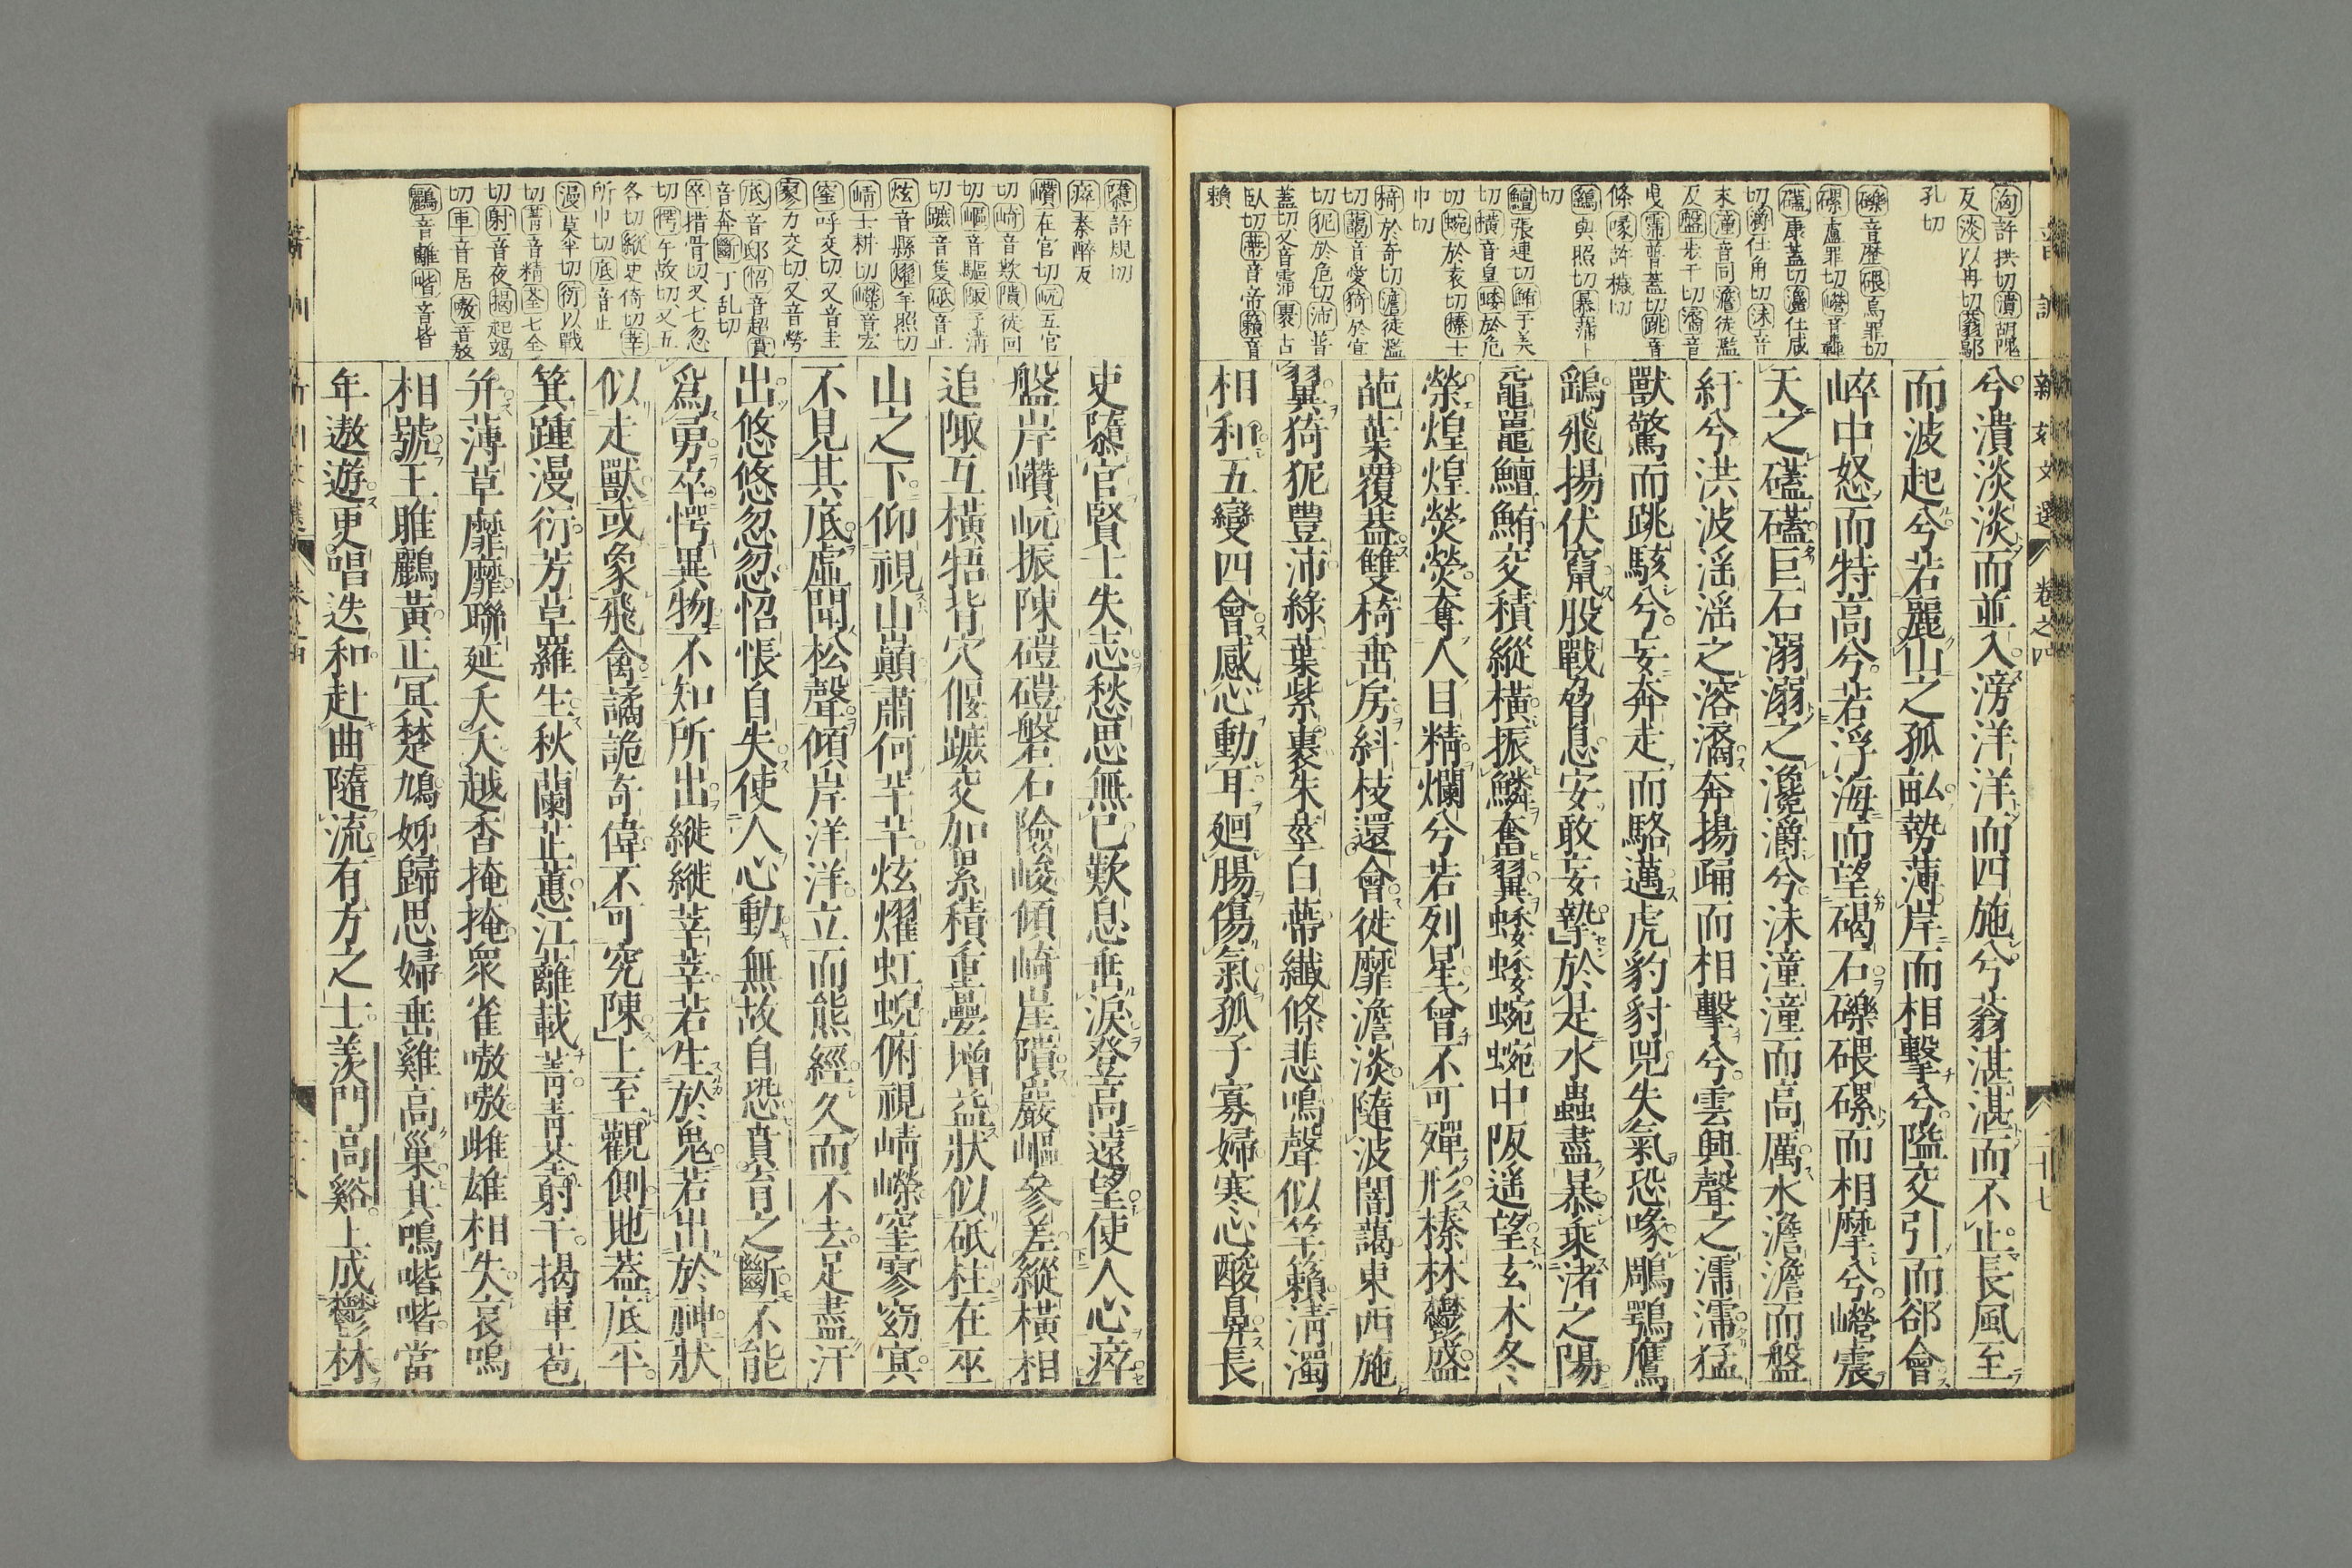 新刻文選
卷之四
二十七
洶許拱切瀆胡隗
反淡以冉切蓊鄔
孔切
礫音歷碨烏罪切
磥盧罪切嶜音轟
礚康蓋切瀺仕咸
切灂仕角切沫音
末潼音同澹徒濫
反盤步干切濡音
曳霈普蓋切跳音
條喙許穢切
鷂與照切暴蒲卜
切
鱣張連切鮪于美
切橫音皇蜲於危
切蜿於袁切榛士
巾切
椅於奇切澹徒濫
切藹音愛猗於宜
切狔於危切沛普
蓋切又音霈裹古
臥切蔕音帝籟音
賴
兮潰淡淡而並入滂洋洋而四施兮蓊湛湛而不止長風至
而波起兮若麗山之孤畝勢薄岸而相擊兮隘交引而郤會
崪中怒而特高兮若浮海而望碣石礫碨磥而相摩兮嶜震
天之礚礚巨石溺溺之瀺灂兮沫潼潼而高厲水澹澹而盤
紆兮洪波淫淫之溶㵝奔揚踊而相擊兮雲興聲之霈霈猛
獸驚而跳駭兮妄奔走而馳邁虎豹豺兕失氣恐喙鵰鶚鷹
鷂飛揚伏竄股戰脅息安敢妄摯於是水蟲盡暴乘渚之陽
黿鼉鱣鮪交積縱橫振鱗奮翼蜲蜲蜿蜿中阪遙望玄木冬
榮煌煌熒熒奪人目精爛兮若列星曾不可殫形榛林鬱盛
葩葉覆蓋雙椅垂房糾枝還會徙靡澹淡隨波闇藹東西施
翼猗狔豐沛綠葉紫裹朱莖白蔕纖條悲鳴聲似竽籟淸濁
相和五變四會感心動耳廻腸傷氣孤子寡婦寒心酸鼻長
隳許規切
瘁秦醉反
巑在官切岏五官
切崎音欹隤徒回
切嶇音驅陬子溝
切蹠音隻砥音止
炫音縣燿羊照切
崝士耕切嶸音宏
窐呼交切又音圭
寥力交切又音勞
底音邸怊音超賁
音奔斷丁乱切
卒措骨切又七忽
切愕午故切又五
各切縰史倚切莘
所巾切底音止
漫莫半切衍以戰
切菁音精荃七全
切射音夜揭起竭
切車音居嗷音敖
鸝音離喈音皆
吏隳官賢士失志愁思無已歎息垂淚登高遠望使人心瘁
盤岸巑岏振陳磑磑磐石險峻傾崎崖隤巖嶇參差縱橫相
追陬互橫牾背穴偃蹠交加累積重疊增益狀似砥柱在巫
山之下仰視山巔肅何芊芊炫燿虹蜺俯視崝嶸窐寥窈冥
不見其底虛聞松聲傾岸洋洋立而熊經久而不去足盡汗
出悠悠忽忽怊悵自失使人心動無故自恐賁育之斷不能
爲勇卒愕異物不知所出縰縰莘莘若生於鬼若出於神狀
似走獸或象飛禽譎詭奇偉不可究陳上至觀側地蓋底平
箕踵漫衍芳草羅生秋蘭茝蕙江蘺載菁靑荃射干揭車苞
幷薄草靡靡聯延夭夭越香掩掩衆雀嗷嗷雌雄相失哀鳴
相號王雎鸝黃正冥楚鳩姊歸思婦垂雞高巢其鳴喈喈當
年遨遊更唱迭和赴曲隨流有方之士羨門高谿上成鬱林